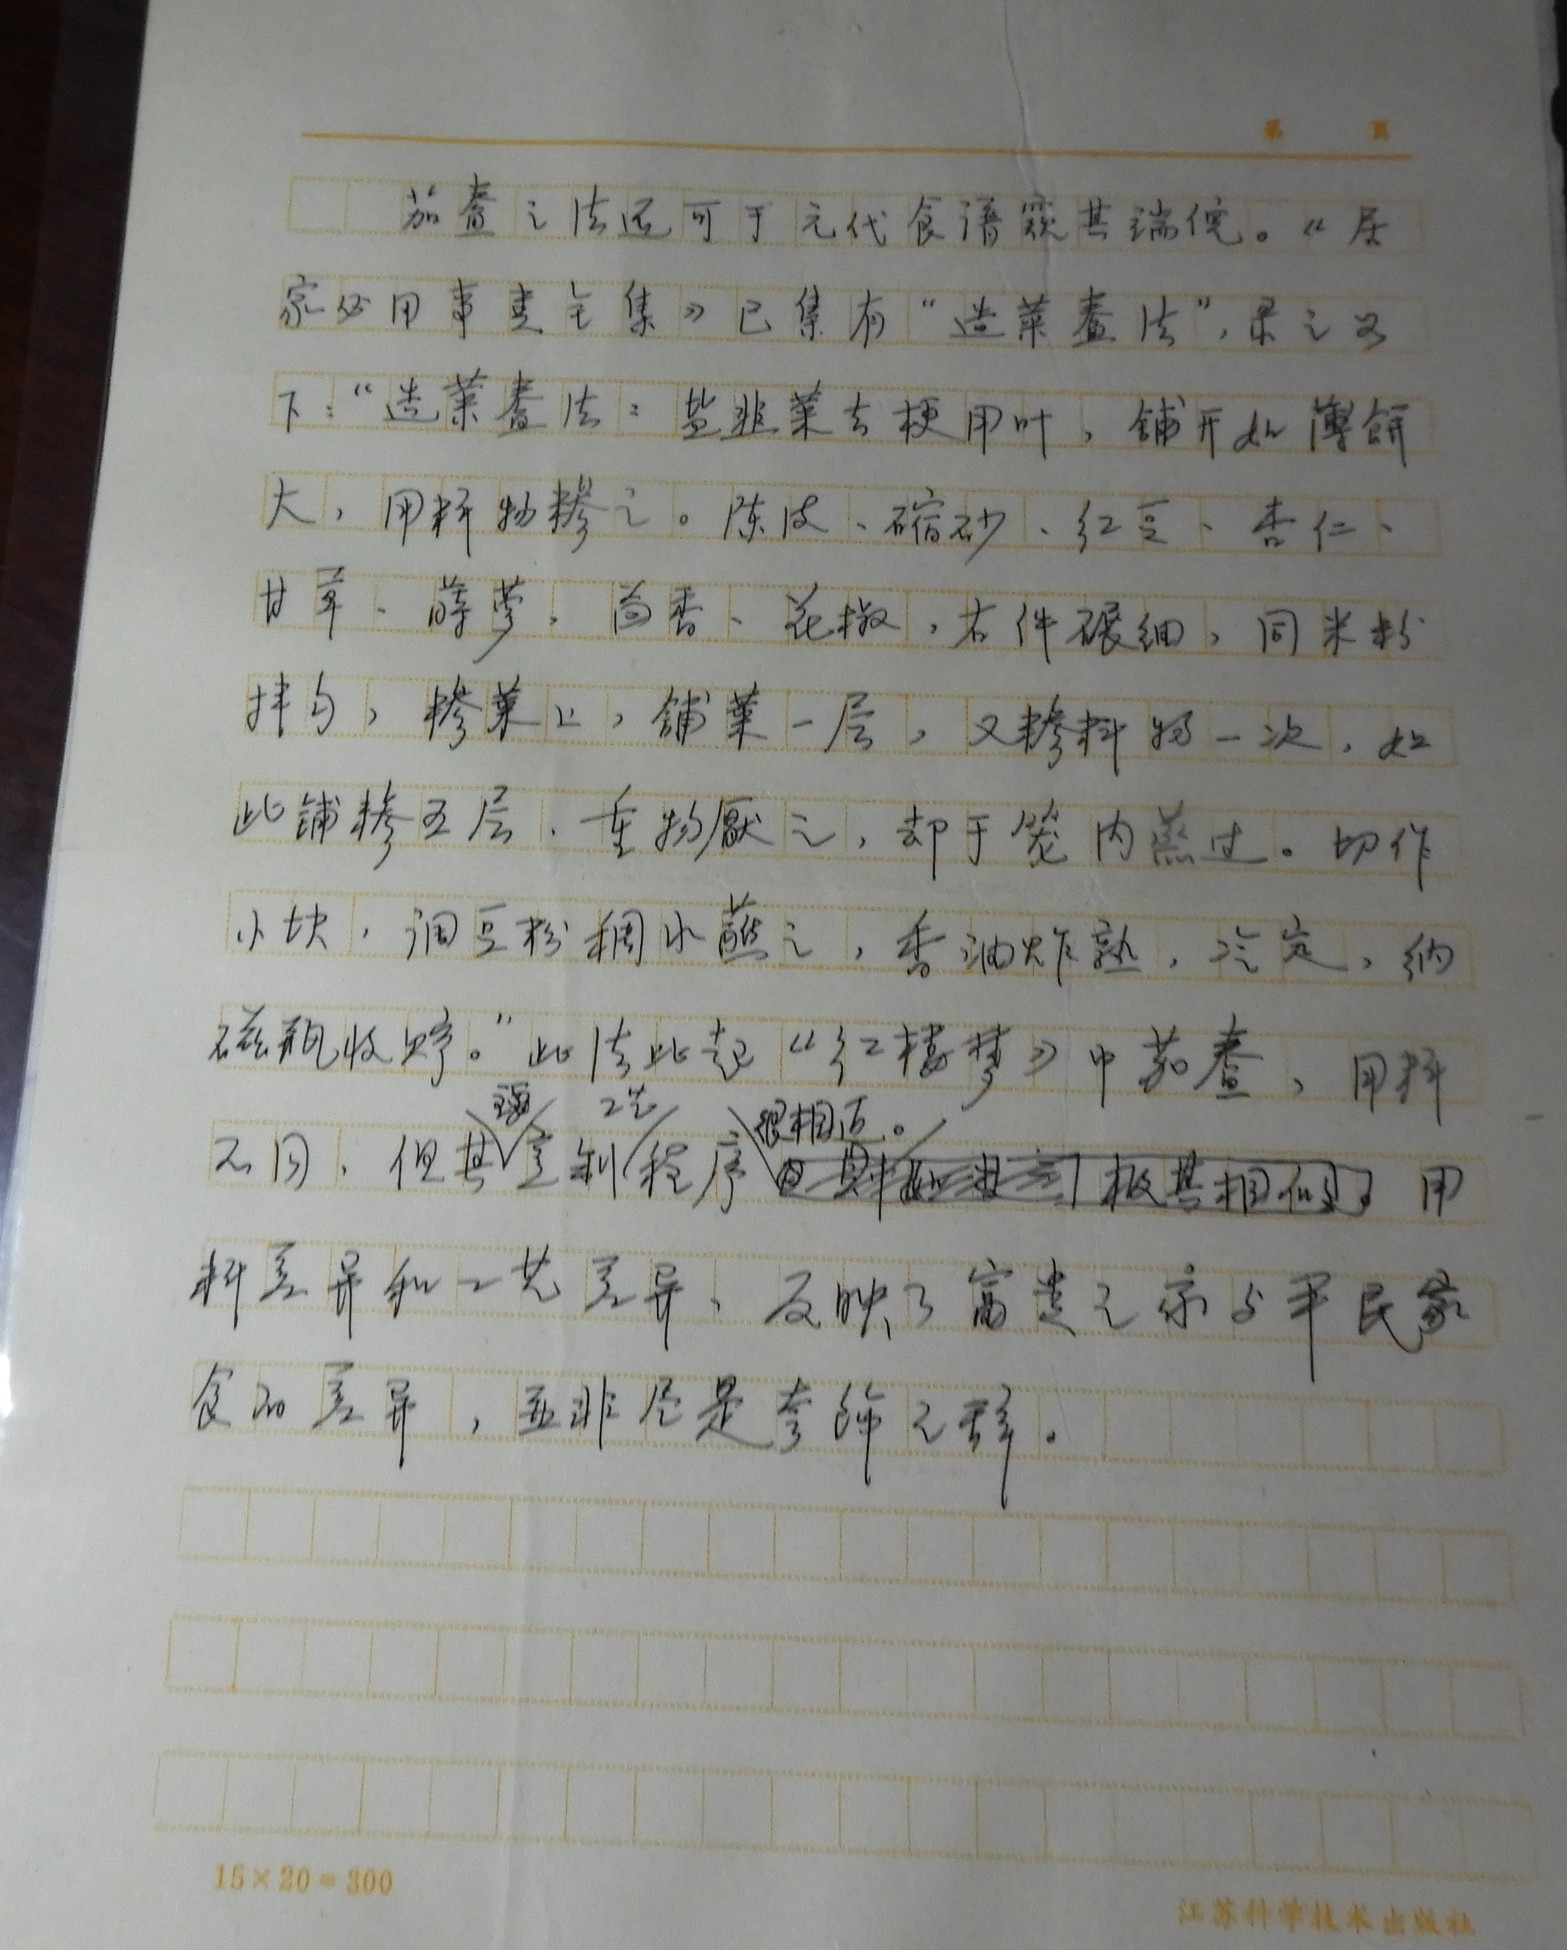 第 頁
茄鲞之法还可于元代食谱窥其端倪。《居
家必用事类全集》已集有“造菜鲞法”，录之如
下：“造菜鲞法：盐韭菜去梗用叶，铺开如薄餅
大，用料物糁之。陈皮、缩砂、红豆、杏仁、
甘草、莳萝、茴香、花椒，右件碾细，同米粉
拌匀，糁菜上，铺菜一层，又糁料物一次，如
此铺糁五层，重物厭之，却于笼内蒸过。切作
小块，调豆粉稠水蘸之，香油炸熟，冷定，纳
磁瓶收贮。”此法比起《红楼梦》中茄鲞，用料
主要 工艺 很相近。
不同，但其制程序 极其相似 用
料差异和工艺差异，反映了富贵之家与平民家
食的差异，并非尽是夸饰之辞。
15×20=300
江苏科学技术出版社